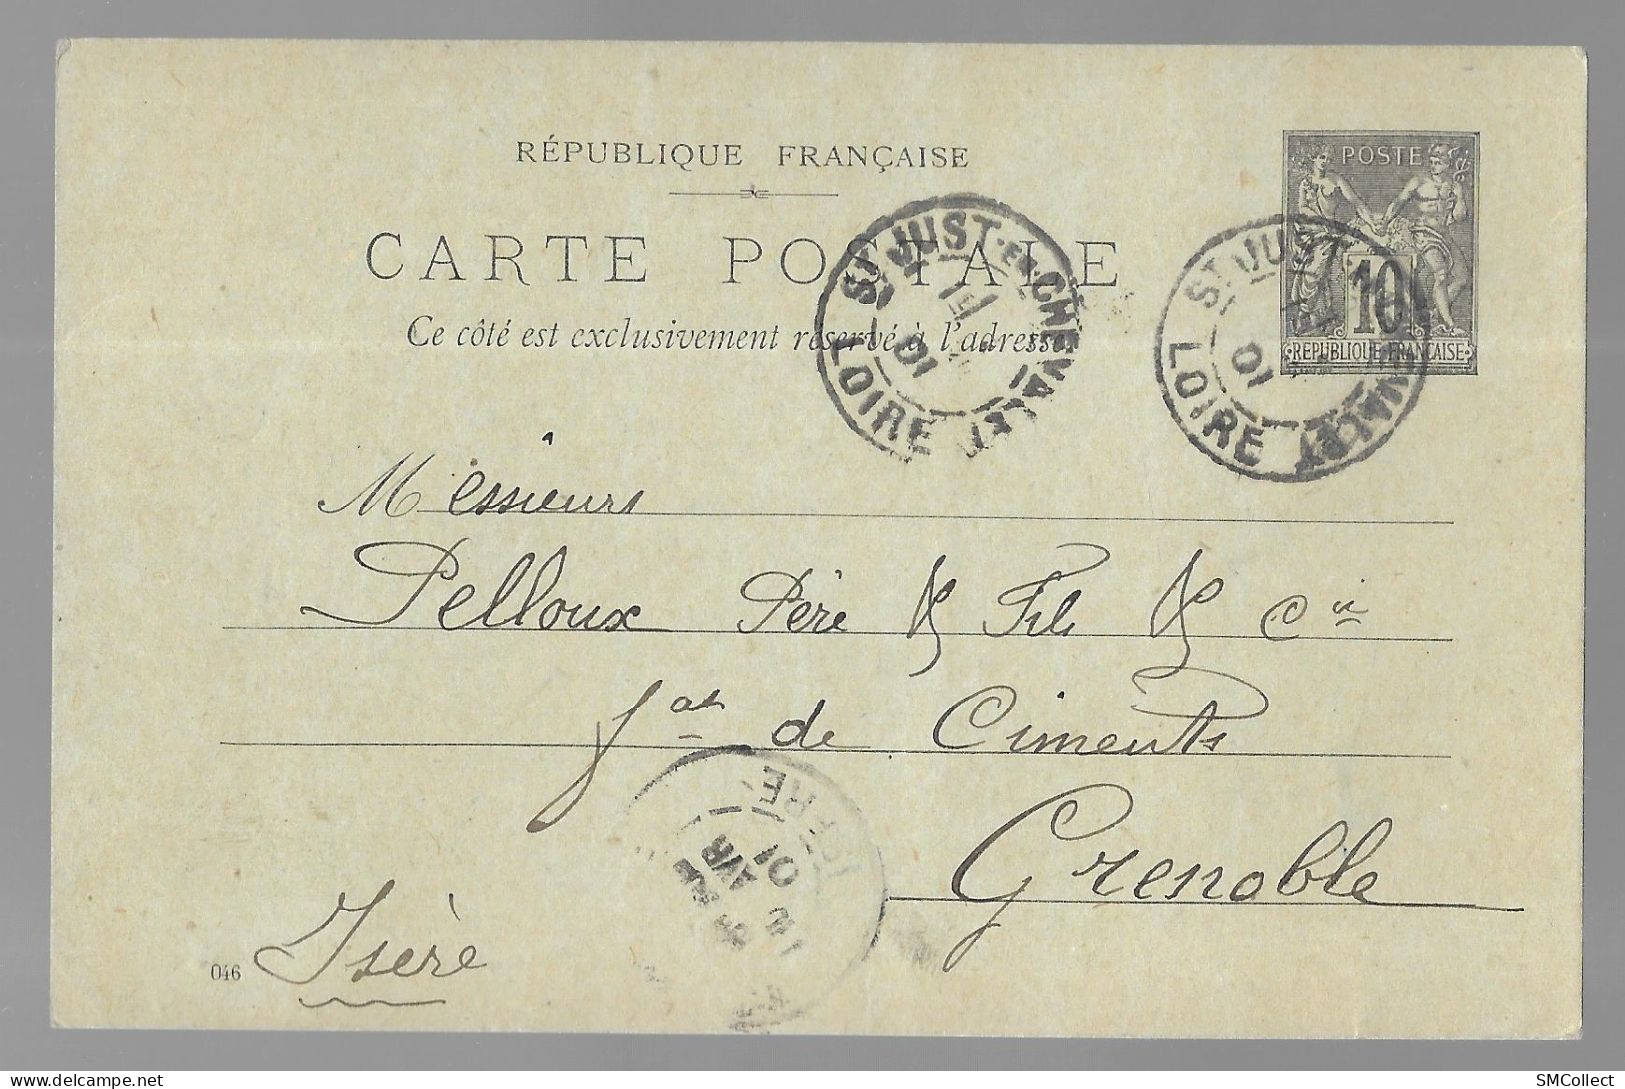 RÉPUBLIQUE FRANÇAISE
POSTE
CARTE POSTALE
10
RÉPUBLIQUE FRANÇAISE
Ce côté est exclusivement réservé à l'adresse.
ST JUST-EN-CHEVALET
01
LOIRE
ST JUST
01
LOIRE
Messieurs
Pelloux Père & Fils & Cie
fat de Ciments
Grenoble
ISERE
AVR
01
Isère
046
SMCollect